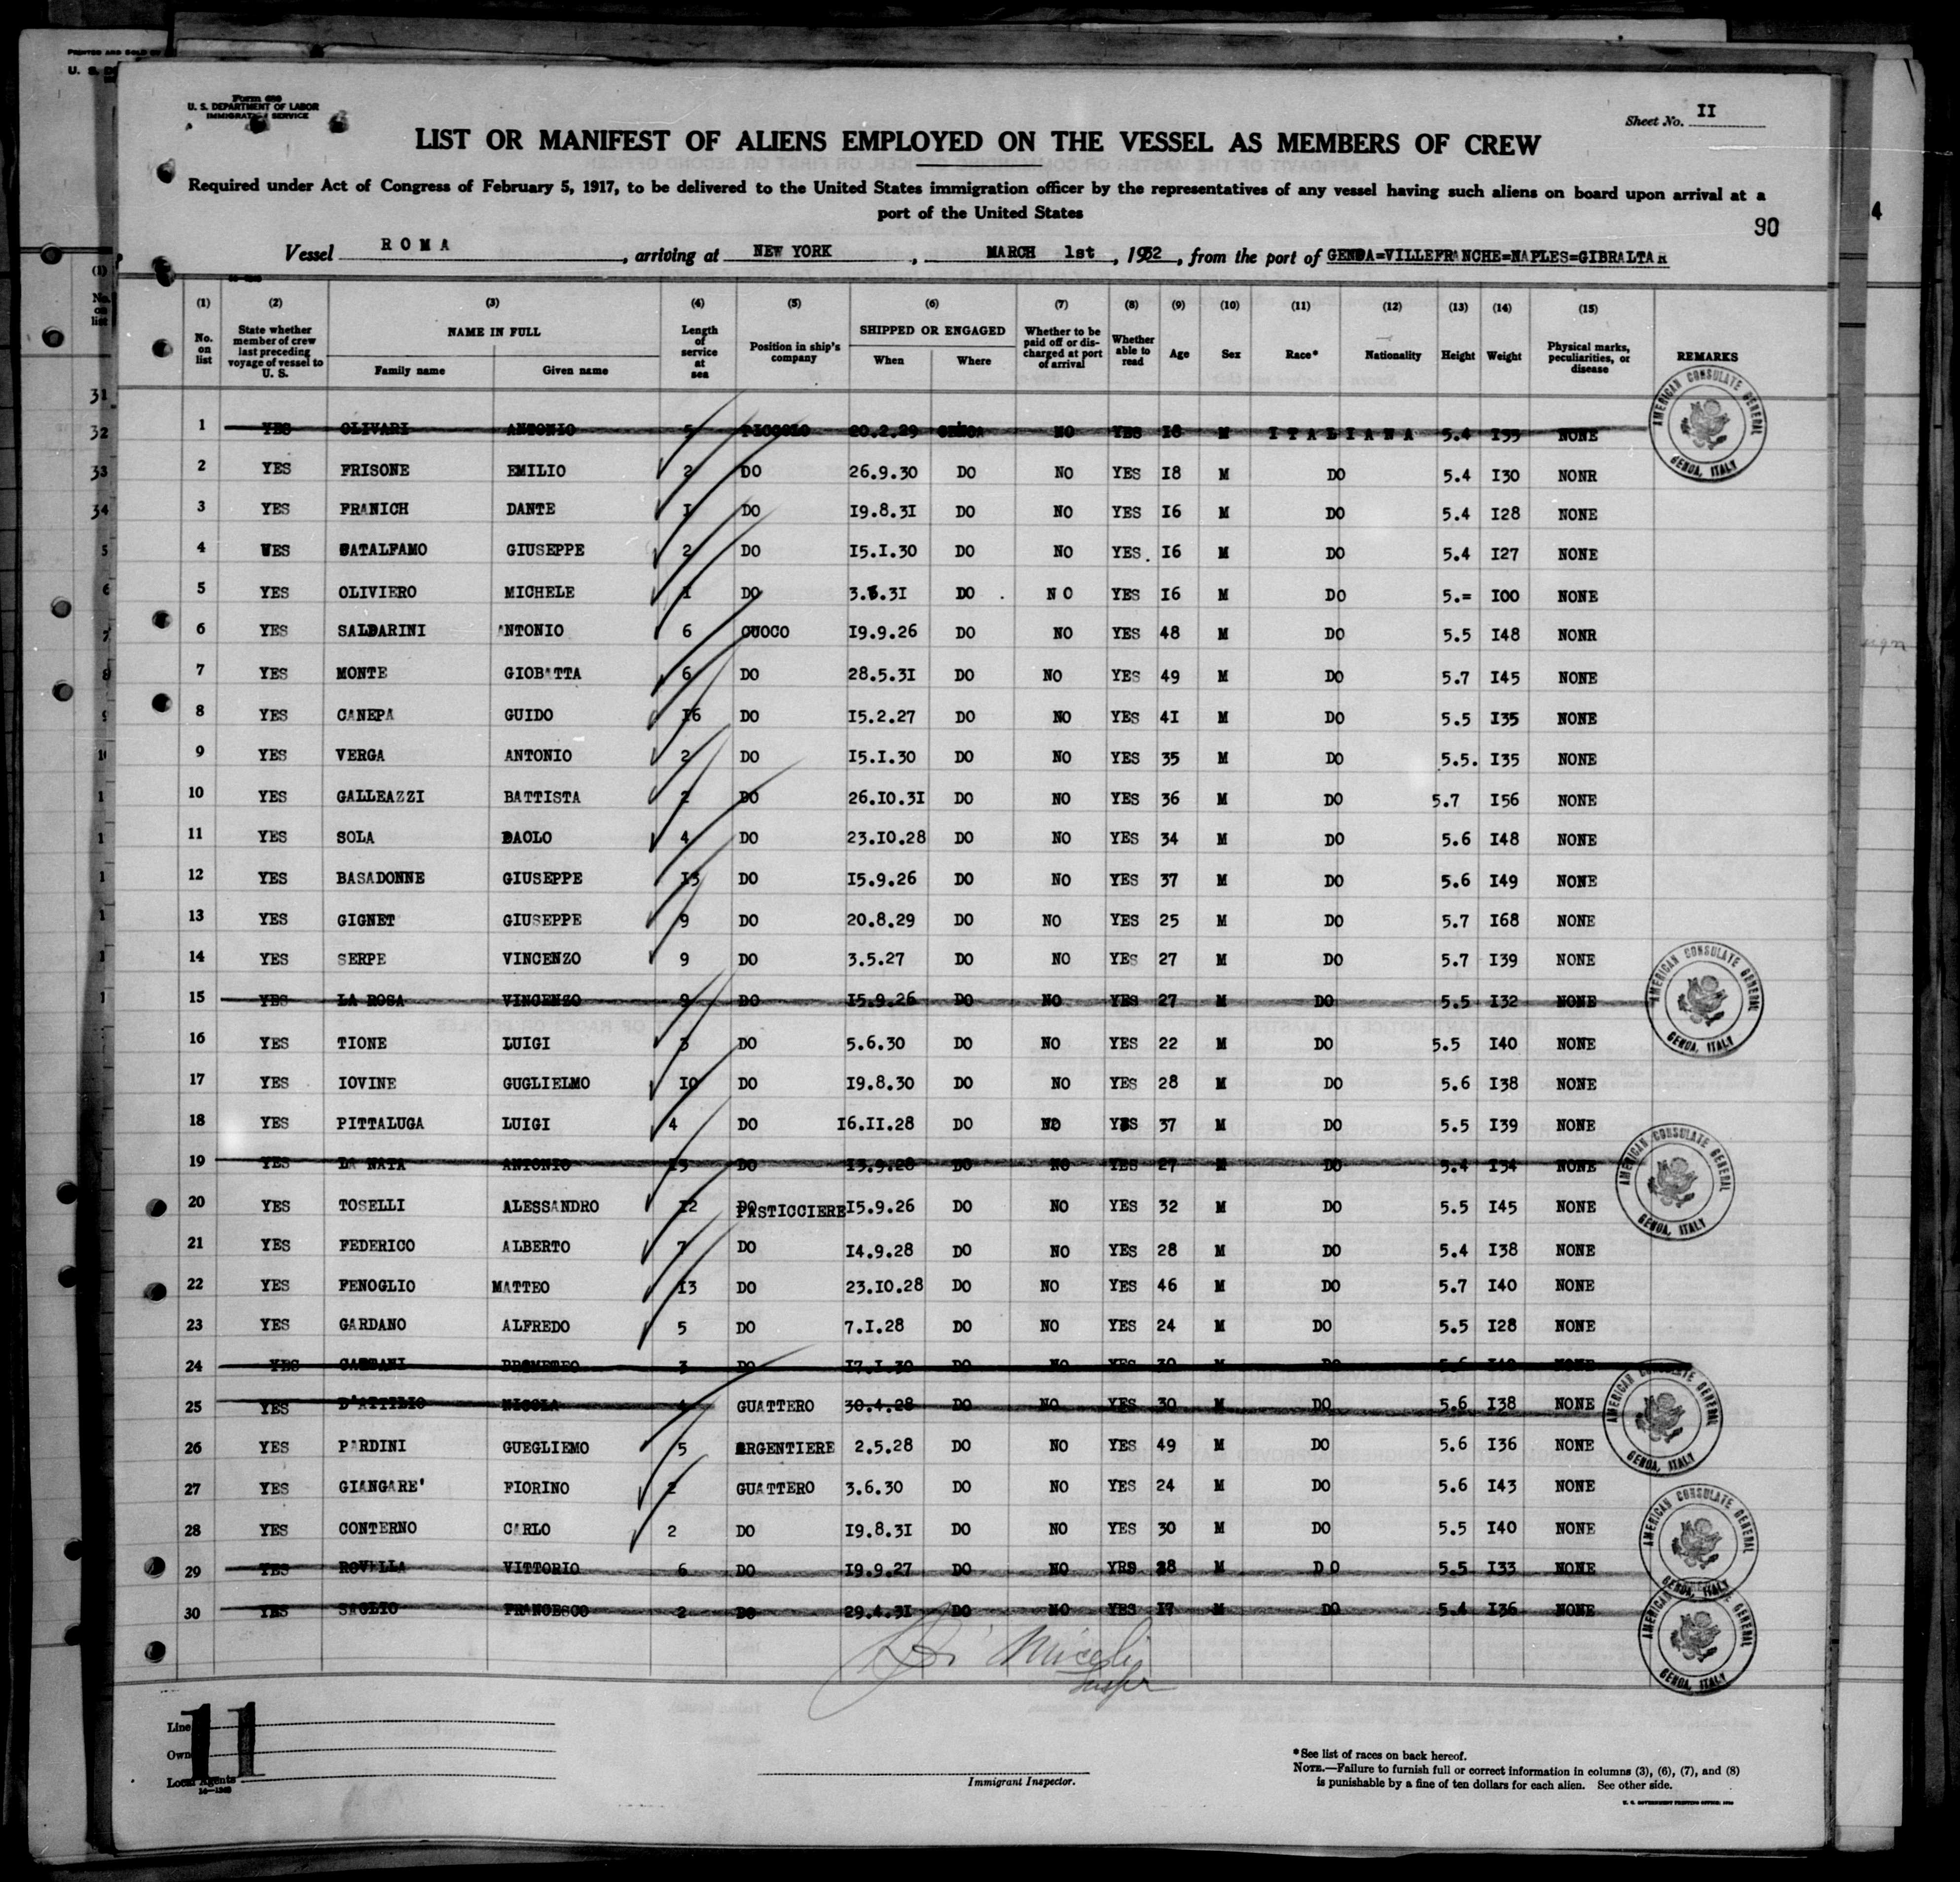 PRINTED AND SOLD BY
U. S.
Form 689
U. S. DEPARTMENT OF LABOR
IMMIGRATION SERVICE
Sheet No. II
LIST OR MANIFEST OF ALIENS EMPLOYED ON THE VESSEL AS MEMBERS OF CREW
Required under Act of Congress of February 5, 1917, to be delivered to the United States immigration officer by the representatives of any vessel having such aliens on board upon arrival at a
port of the United States
90
Vessel ROMA, arriving at NEW YORK, MARCH 1st, 1932, from the port of GENOA=VILLEFRANCHE=NAPLES=GIBRALTAR
(1) (2) (3) (4) (5) (6) (7) (8) (9) (10) (11) (12) (13) (14) (15)
No. on list State whether member of crew last preceding voyage of vessel to U. S. NAME IN FULL Family name Given name Length of service at sea Position in ship's company SHIPPED OR ENGAGED When Where Whether to be paid off or discharged at port of arrival Whether able to read Age Sex Race* Nationality Height Weight Physical marks, peculiarities, or disease REMARKS
1 YES OLIVARI ANTONIO 5 PICCOLO 20.2.29 GENOA NO YES 18 M ITALIANA 5.4 I35 NONE
2 YES FRISONE EMILIO 2 DO 26.9.30 DO NO YES I8 M DO 5.4 I30 NONR
3 YES FRANICH DANTE I DO I9.8.3I DO NO YES I6 M DO 5.4 I28 NONE
4 YES CATALFAMO GIUSEPPE 2 DO I5.I.30 DO NO YES. I6 M DO 5.4 I27 NONE
5 YES OLIVIERO MICHELE I DO 3.8.3I DO . N O YES I6 M DO 5.= I00 NONE
6 YES SALDARINI ANTONIO 6 CUOCO I9.9.26 DO NO YES 48 M DO 5.5 I48 NONR
7 YES MONTE GIOBATTA 6 DO 28.5.3I DO NO YES 49 M DO 5.7 I45 NONE
8 YES CANEPA GUIDO I6 DO I5.2.27 DO NO YES 4I M DO 5.5 I35 NONE
9 YES VERGA ANTONIO 2 DO I5.I.30 DO NO YES 35 M DO 5.5. I35 NONE
10 YES GALLEAZZI BATTISTA 2 DO 26.I0.3I DO NO YES 36 M DO 5.7 I56 NONE
11 YES SOLA PAOLO 4 DO 23.I0.28 DO NO YES 34 M DO 5.6 I48 NONE
12 YES BASADONNE GIUSEPPE I3 DO I5.9.26 DO NO YES 37 M DO 5.6 I49 NONE
13 YES GIGNET GIUSEPPE 9 DO 20.8.29 DO NO YES 25 M DO 5.7 I68 NONE
14 YES SERPE VINCENZO 9 DO 3.5.27 DO NO YES 27 M DO 5.7 I39 NONE
15 YES LA ROSA VINCENZO 9 DO I5.9.26 DO NO YES 27 M DO 5.5 I32 NONE
16 YES TIONE LUIGI 3 DO 5.6.30 DO NO YES 22 M DO 5.5 I40 NONE
17 YES IOVINE GUGLIELMO I0 DO I9.8.30 DO NO YES 28 M DO 5.6 I38 NONE
18 YES PITTALUGA LUIGI 4 DO I6.II.28 DO NO YES 37 M DO 5.5 I39 NONE
19 YES LA NATA ANTONIO DO DO NO YES 27 M DO 5.4 I34 NONE
20 YES TOSELLI ALESSANDRO I2 PASTICCIERE I5.9.26 DO NO YES 32 M DO 5.5 I45 NONE
21 YES FEDERICO ALBERTO 7 DO I4.9.28 DO NO YES 28 M DO 5.4 I38 NONE
22 YES FENOGLIO MATTEO I3 DO 23.I0.28 DO NO YES 46 M DO 5.7 I40 NONE
23 YES GARDANO ALFREDO 5 DO 7.I.28 DO NO YES 24 M DO 5.5 I28 NONE
24 YES PROMETEO 3 DO I7.I.30 DO NO YES 30 M DO 5.6 NONE
25 YES D'ATTILIO NICOLA 4 GUATTERO 30.4.28 DO NO YES 30 M DO 5.6 I38 NONE
26 YES PARDINI GUEGLIEMO 5 ARGENTIERE 2.5.28 DO NO YES 49 M DO 5.6 I36 NONE
27 YES GIANGARE' FIORINO 2 GUATTERO 3.6.30 DO NO YES 24 M DO 5.6 I43 NONE
28 YES CONTERNO CARLO 2 DO I9.8.3I DO NO YES 30 M DO 5.5 I40 NONE
29 YES ROVELLA VITTORIO 6 DO I9.9.27 DO NO YRS 28 M D O 5.5 I33 NONE
30 YES SAGLIO FRANCESCO 2 DO 29.4.3I DO NO YES I7 M DO 5.4 I36 NONE
AMERICAN CONSULATE GENERAL
GENOA, ITALY
AMERICAN CONSULATE GENERAL
GENOA, ITALY
AMERICAN CONSULATE GENERAL
GENOA, ITALY
AMERICAN CONSULATE GENERAL
GENOA, ITALY
AMERICAN CONSULATE GENERAL
GENOA, ITALY
AMERICAN CONSULATE GENERAL
GENOA, ITALY
Line
Own
Local Agents
11
Immigrant Inspector.
*See list of races on back hereof.
NOTE.—Failure to furnish full or correct information in columns (3), (6), (7), and (8)
is punishable by a fine of ten dollars for each alien. See other side.